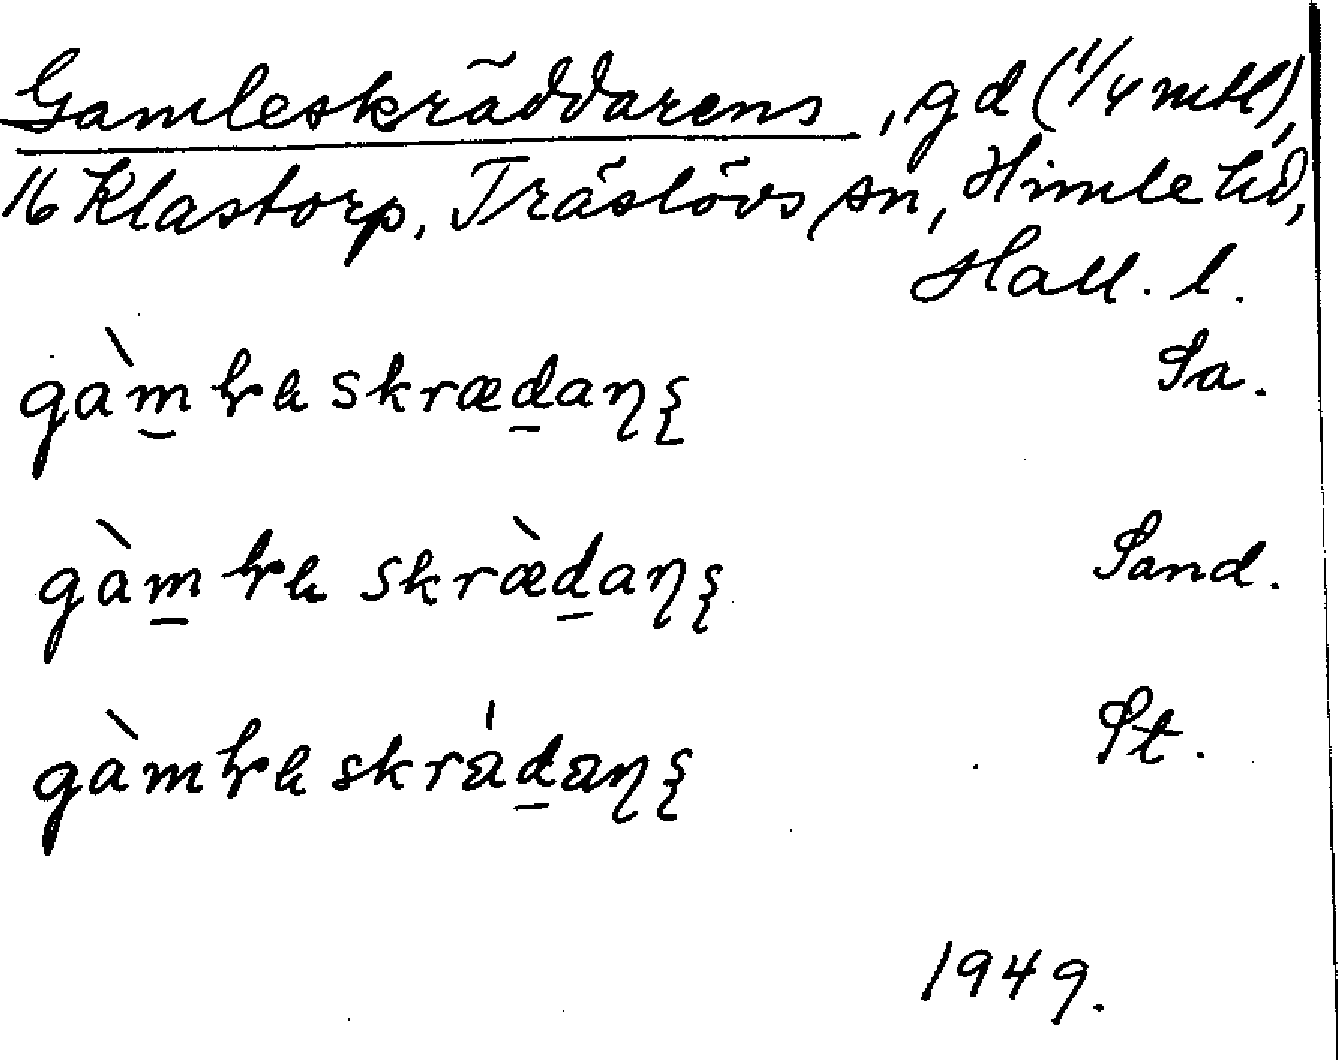 Gamleskräddarens, gd (1/4 mtl),
16 Klastorp, Träslövs sn, Himle hd,
Hall. l.
gàm skrædaηș Sa.
gàm skræ̀daηș Sand.
gàm St.
1949.